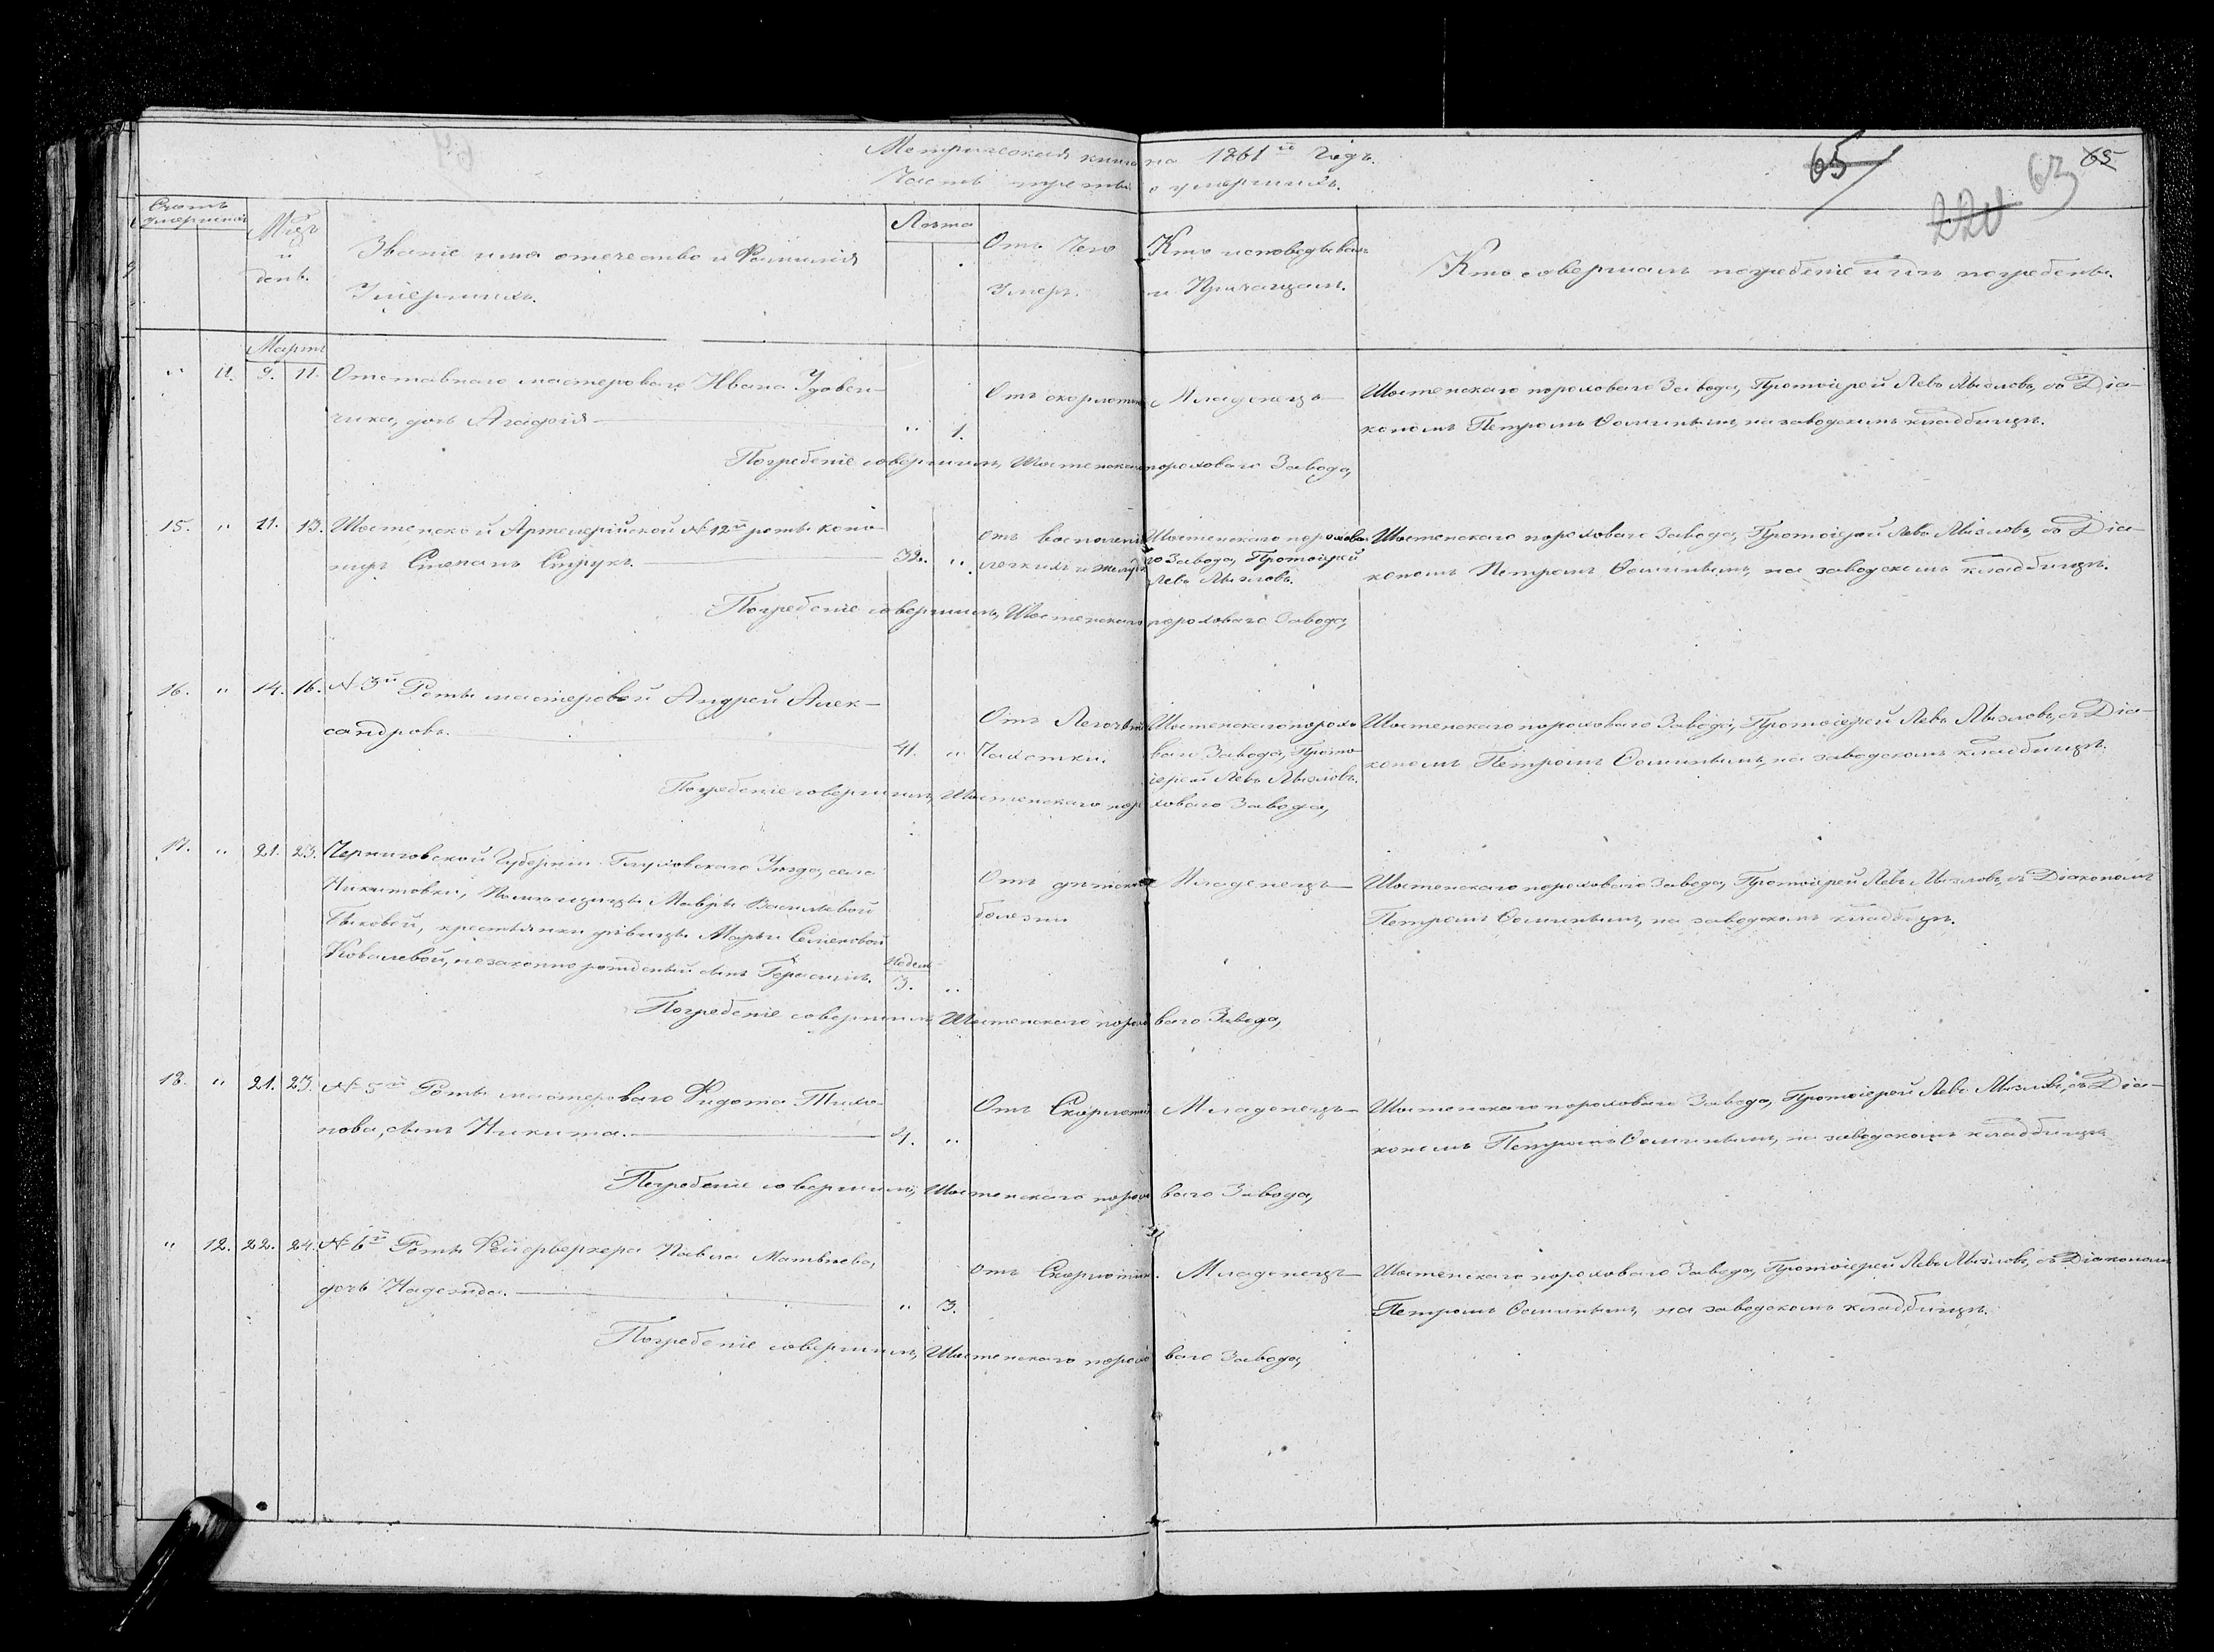 Метрическая книга на 1861й Годъ. 65 63 65
Часть третья о умершихъ. 220
Счетъ умершихъ
Мцъ и день.
Званіе имя отечество и Фамилія Умершихъ.
Лѣта
Отъ Чего Умеръ.
Кто исповѣдывалъ и Причащалъ.
Кто совершалъ погребеніе и гдѣ погребены.
Мартъ
" 11. 9. 11. Отставнаго мастероваго Ивана Удовен-
чика, дочь Агафія " 1.
Отъ скорлотины
Младенецъ
Шостенскаго пороховаго Завода, Протоіерей Левъ Мызловъ, съ Діа-
кономъ Петромъ Ооминымъ, на заводскимъ кладбищѣ.
Погребеніе совершили, Шостенскаго пороховаго Завода,
15. " 11. 13. Шостенской Артелерійской №12й роты коно-
ниръ Степанъ Струкъ. 32. "
отъ воспаленія
легкихъ и
Шостенскаго порохова-
го Завода, Протоіерей
Левъ Мызловъ.
Шостенскаго пороховаго Завода, Протоіерей Левъ Мызловъ, съ Діа-
кономъ Петромъ Ооминымъ, на заводскомъ кладбищѣ.
Погребеніе совершили, Шостенскаго пороховаго Завода,
16. " 14. 16. №3й Роты мастеровой Андрей Алек-
сандровъ. 41. "
Отъ Легочной
Чахотки.
Шостенскаго порохо-
ваго Завода, Прото-
іерей Левъ Мызловъ.
Шостенскаго пороховаго Завода, Протоіерей Левъ Мызловъ, съ Діа-
кономъ Петромъ Ооминымъ, на заводскомъ кладбищѣ.
Погребеніе совершили, Шостенскаго пороховаго Завода,
17. " 21. 23. Черниговской Губерніи Глуховскаго Уѣзда, села
Никитовки, Помѣщицы Мавры Васильевой
Быковой, крестьянки дѣвицы Марьи Семеновой
Ковалевой, незаконно рожденный сынъ Герасимъ. недель 3. "
Отъ дѣтской
болезни
Младенецъ
Шостенскаго пороховаго Завода, Протоіерей Левъ Мызловъ, съ Діакономъ
Петромъ Ооминымъ, на заводскомъ кладбищѣ.
Погребеніе совершили Шостенскаго пороховаго Завода,
18. " 21. 23. №5й Роты мастероваго Фидота Тихо-
нова, сынъ Никита. 4. "
Отъ Скорлотины
Младенецъ
Шостенскаго пороховаго Завода, Протоіерей Левъ Мызловъ, съ Діа-
кономъ Петромъ Ооминымъ, на заводскомъ кладбищѣ
Погребеніе совершили, Шостенскаго пороховаго Завода,
" 12. 22. 24. №6й Роты Фейерверкера Павла Матвѣева,
дочь Надежда. " 3.
отъ Скорлотины.
Младенецъ
Шостенскаго пороховаго Завода, Протоіерей Левъ Мызловъ, съ Діакономъ
Петромъ Ооминымъ, на заводскомъ кладбищѣ.
Погребеніе совершили, Шостенскаго пороховаго Завода,